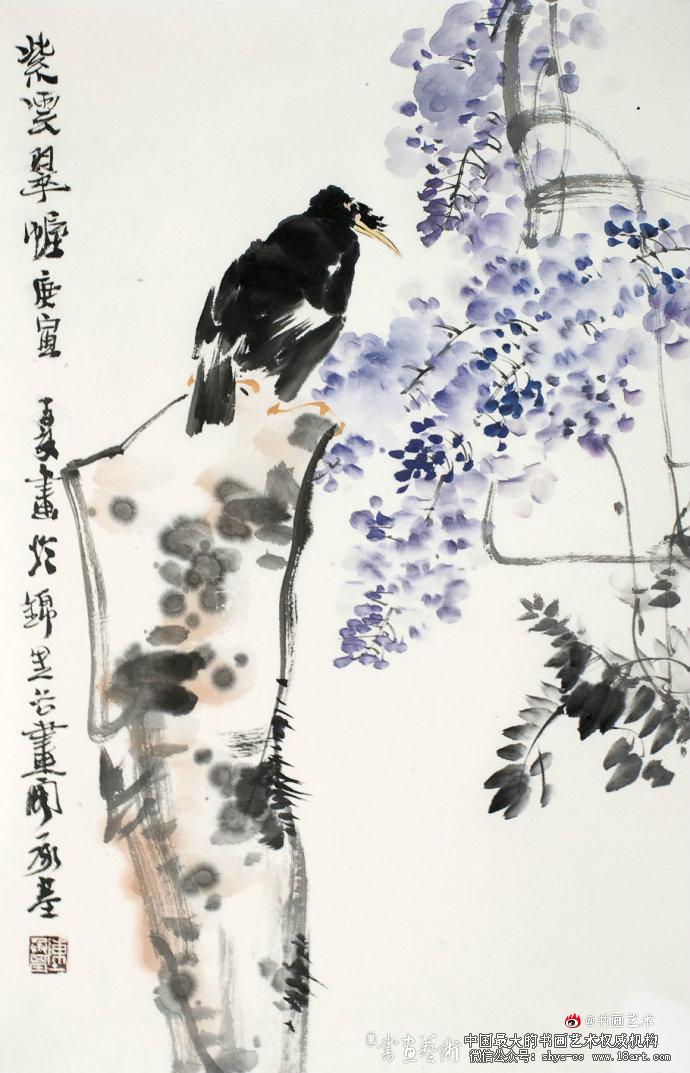 紫雲翠幄 庚寅 夏畫於錦里畫閣承基
@书画艺术
書畫藝術
中国最大的书画艺术权威机构
微信公众号: shys-cc www.18art.com